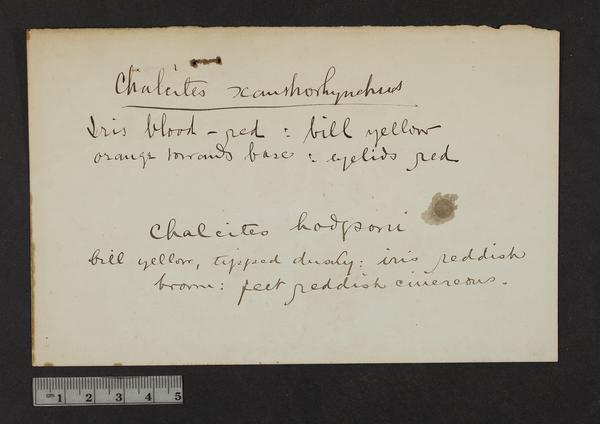 Chalcites xanthorhynchus
Iris blood-red : bill yellow
orange towards base : eyelids red
Chalcites hodgsoni
bill yellow, tipped dusky: iris reddish
brown: feet reddish cinereous.
cm 1 2 3 4 5